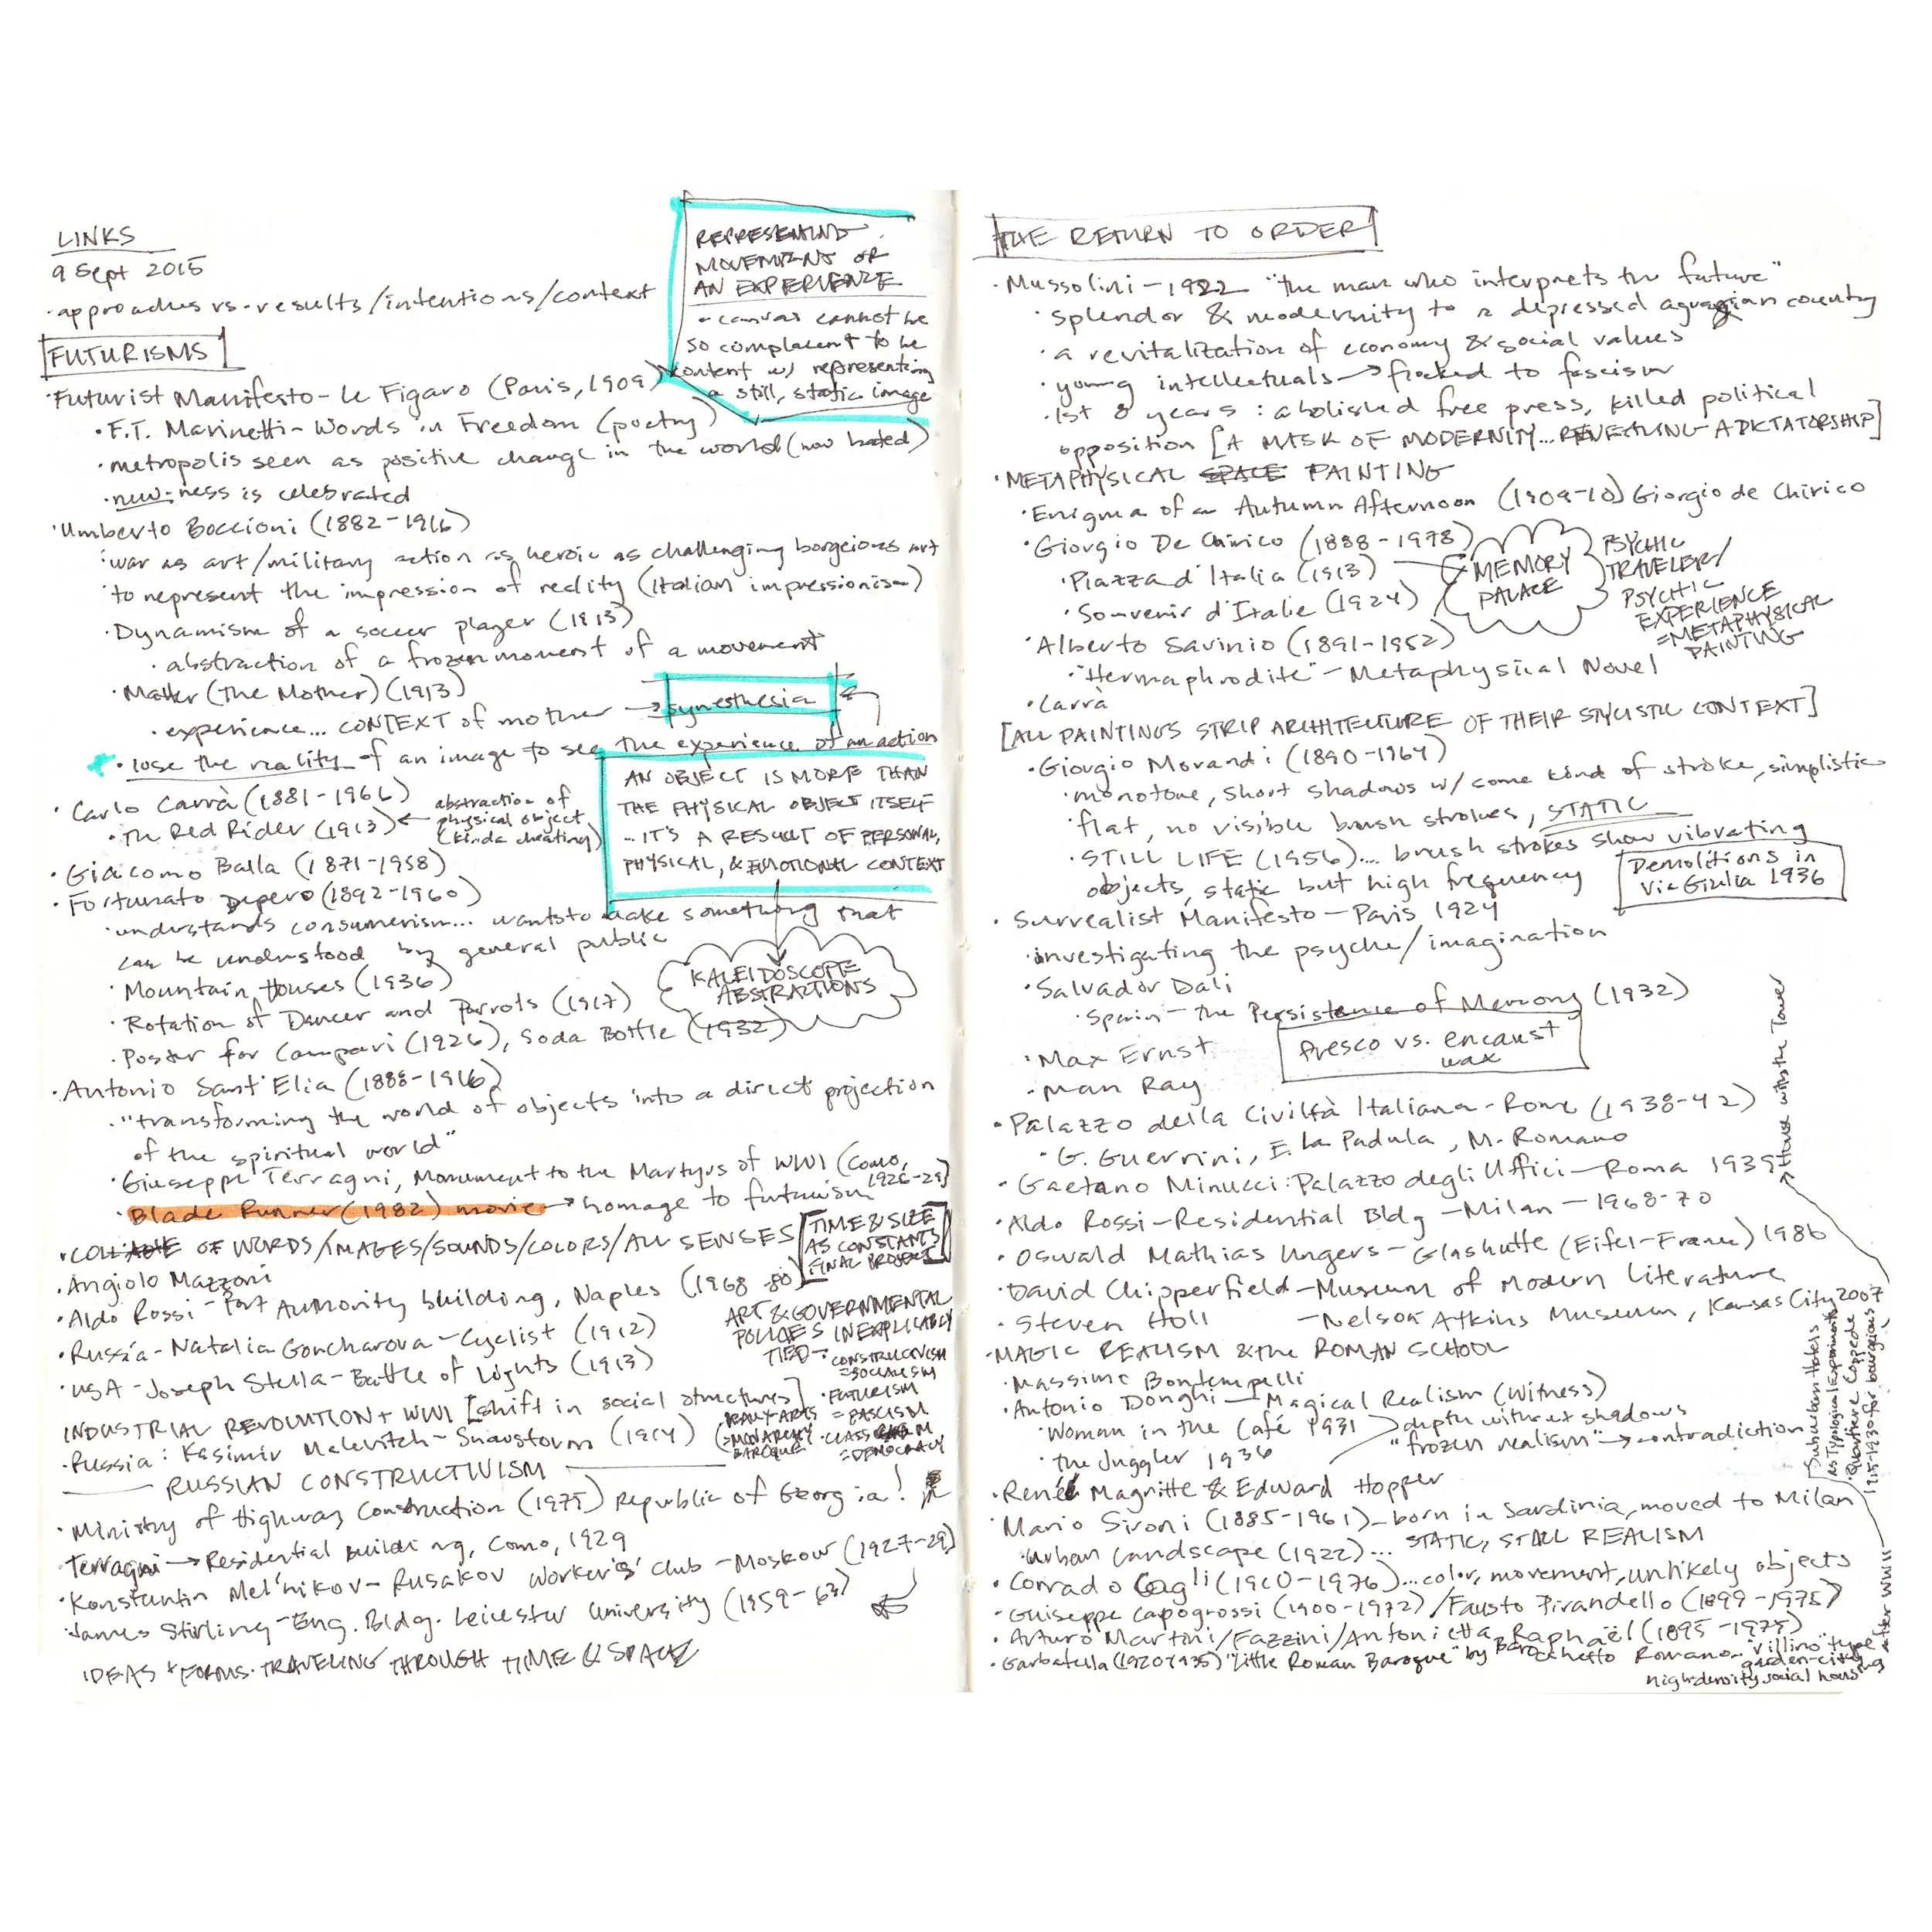 LINKS
9 Sept 2015
· approaches vs. results/intentions/context
FUTURISMS
REPRESENTING
MOVEMENT OR
AN EXPERIENCE
- canvas cannot be
so complacent to be
content w/ representing
a still, static image
· Futurist Manifesto - Le Figaro (Paris, 1909)
· F.T. Marinetti - Words in Freedom (poetry)
· metropolis seen as positive change in the world (now hated)
· new-ness is celebrated
· Umberto Boccioni (1882-1916)
· war as art/military action as heroic as challenging borgeious art
· to represent the impression of reality (Italian impressionism)
· Dynamism of a soccer player (1913)
· abstraction of a frozen moment of a movement
· Matter (The Mother) (1913)
· experience... CONTEXT of mother → synesthesia
· lose the reality of an image to see the experience of an action
AN OBJECT IS MORE THAN
THE PHYSICAL OBJECT ITSELF
... IT'S A RESULT OF PERSONAL,
PHYSICAL, & EMOTIONAL CONTEXT
KALEIDOSCOPE
ABSTRACTIONS
· Carlo Carrà (1881-1966)
· The Red Rider (1913) ← abstraction of
physical object
(kinda cheating)
· Giacomo Balla (1871-1958)
· Fortunato Depero (1892-1960)
· understands consumerism... wants to make something that
can be understood by general public
· Mountain Houses (1936)
· Rotation of Dancer and Parrots (1917)
· Poster for Campari (1926), Soda Bottle (1932)
· Antonio Sant'Elia (1888-1916)
· "transforming the world of objects into a direct projection
of the spiritual world"
· Giuseppe Terragni, Monument to the Martyrs of WWI (Como,
1926-29)
· Blade Runner (1982) movie → homage to futurism
· COLLAGE OF WORDS/IMAGES/SOUNDS/COLORS/ALL SENSES
TIME & SIZE
AS CONSTANTS
FINAL PROJECT
· Angiolo Mazzoni
· Aldo Rossi - Port Authority building, Naples (1968-80)
· Russia - Natalia Goncharova - Cyclist (1912)
· USA - Joseph Stella - Battle of Lights (1913)
INDUSTRIAL REVOLUTION + WWI [shift in social structures]
ART & GOVERNMENTAL
POLICIES INEXPLICABLY
TIED -
· CONSTRUCTIVISM
= SOCIALISM
· FUTURISM
= FASCISM
= DEMOCRACY
= MONARCHY
BAROQUE
· Russia: Kasimir Malevitch - Snowstorm (1914)
RUSSIAN CONSTRUCTIVISM
· Ministry of Highway Construction (1975) Republic of Georgia!
· Terragni → Residential Building, Como, 1929
· Konstantin Mel'nikov - Rusakov Worker's' club - Moskow (1927-29)
· James Stirling - Eng. Bldg. Leicester University (1959-63)
IDEAS + FORMS TRAVELING THROUGH TIME & SPACE
THE RETURN TO ORDER
· Mussolini - 1922 "the man who interprets the future"
· splendor & modernity to a depressed agragian country
· a revitalization of economy & social values
· young intellectuals → flocked to fascism
· 1st 8 years: abolished free press, killed political
opposition [A MASK OF MODERNITY... REVEALING A DICTATORSHIP]
· METAPHYSICAL SPACE PAINTING
· Enigma of an Autumn Afternoon (1909-10) Giorgio de Chirico
· Giorgio De Chirico (1888-1978)
· Piazza d'Italia (1913)
· Souvenir d'Italie (1924)
MEMORY
PALACE
PSYCHIC
TRAVELER/
PSYCHIC
EXPERIENCE
= METAPHYSICAL
PAINTING
· Alberto Savinio (1891-1952)
· "Hermaphrodite" - Metaphysical Novel
· Carrà
[ALL PAINTINGS STRIP ARCHITECTURE OF THEIR STYLISTIC CONTEXT]
· Giorgio Morandi (1890-1964)
· monotone, short shadows w/ some kind of stroke, simplistic
· flat, no visible brush strokes, STATIC
· STILL LIFE (1956)... brush strokes show vibrating
objects, static but high frequency
Demolitions in
Via Giulia 1936
· Surrealist Manifesto - Paris 1924
· investigating the psyche/imagination
· Salvador Dali
· Spain - the Persistence of Memory (1932)
· Max Ernst
· Man Ray
fresco vs. encaust
wax
· Palazzo della Civiltà Italiana - Rome (1938-42)
· G. Guerrini, E. La Padula, M. Romano
· Gaetano Minucci: Palazzo degli Uffici - Roma 1939
· Aldo Rossi - Residential Bldg - Milan - 1968-70
· Oswald Mathias Ungers - Glashutte (Eifel-France) 1986
· David Chipperfield - Museum of Modern Literature
· Steven Holl - Nelson Atkins Museum, Kansas City 2007
· MAGIC REALISM & the ROMAN SCHOOL
· Massimo Bontempelli
· Antonio Donghi - Magical Realism (Witness)
· Woman in the Café 1931
· the Juggler 1936
depth without shadows
"frozen realism" → contradiction
· René Magritte & Edward Hopper
· Mario Sironi (1885-1961) - born in Sardinia, moved to Milan
· Urban Landscape (1922)... STATIC, STILL REALISM
· Corrado Cagli (1910-1976)... color, movement, unlikely objects
· Guiseppe Capogrossi (1900-1972) / Fausto Pirandello (1899-1975)
· Arturo Martini/Fazzini/Antonietta Raphaël (1895-1975)
· Garbatella (1920-1935) "Little Roman Baroque" by Barocchetto Romano "villino" type
garden-city
high-density social housing
House with the Tower
Suburban Hotels
as Typological Experiments
· Quartiere Coppede
1915-1930 for bourgeious
after WWII